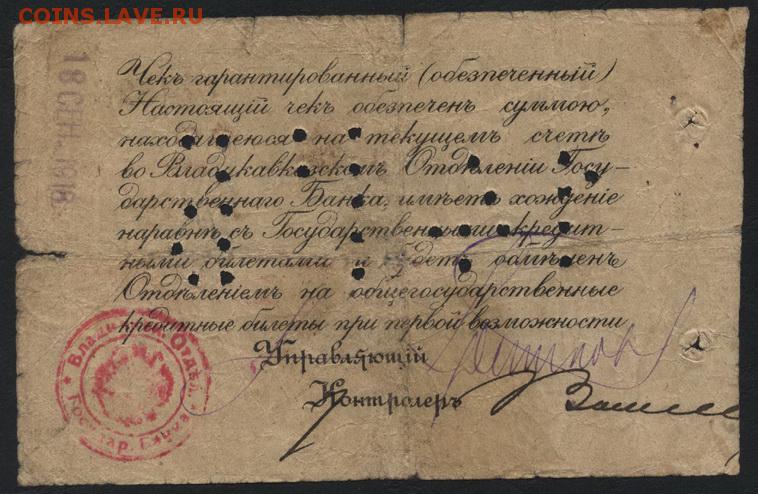 COINS.LAVE.RU
18 СЕН. 1918
Чекъ гарантированный (обезпеченный)
Настоящій чекъ обезпеченъ суммою,
находящеюся на текущемъ счетѣ
во Владикавказскомъ Отдѣленіи Госу-
дарственнаго Банка, имѣетъ хожденіе
наравнѣ съ Государственными кредит-
ными билетами и будетъ обмѣненъ
Отдѣленіемъ на общегосударственные
кредитные билеты при первой возможности
Управляющій
Контролеръ
Отдѣл.
Государ. Банка